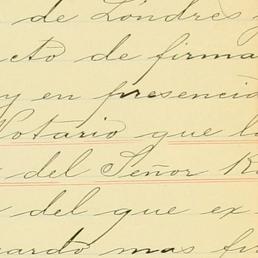 de Londres y
cto de firma
y en presencia
Notario que la
del Señor R
del que ex
cardo mas fir